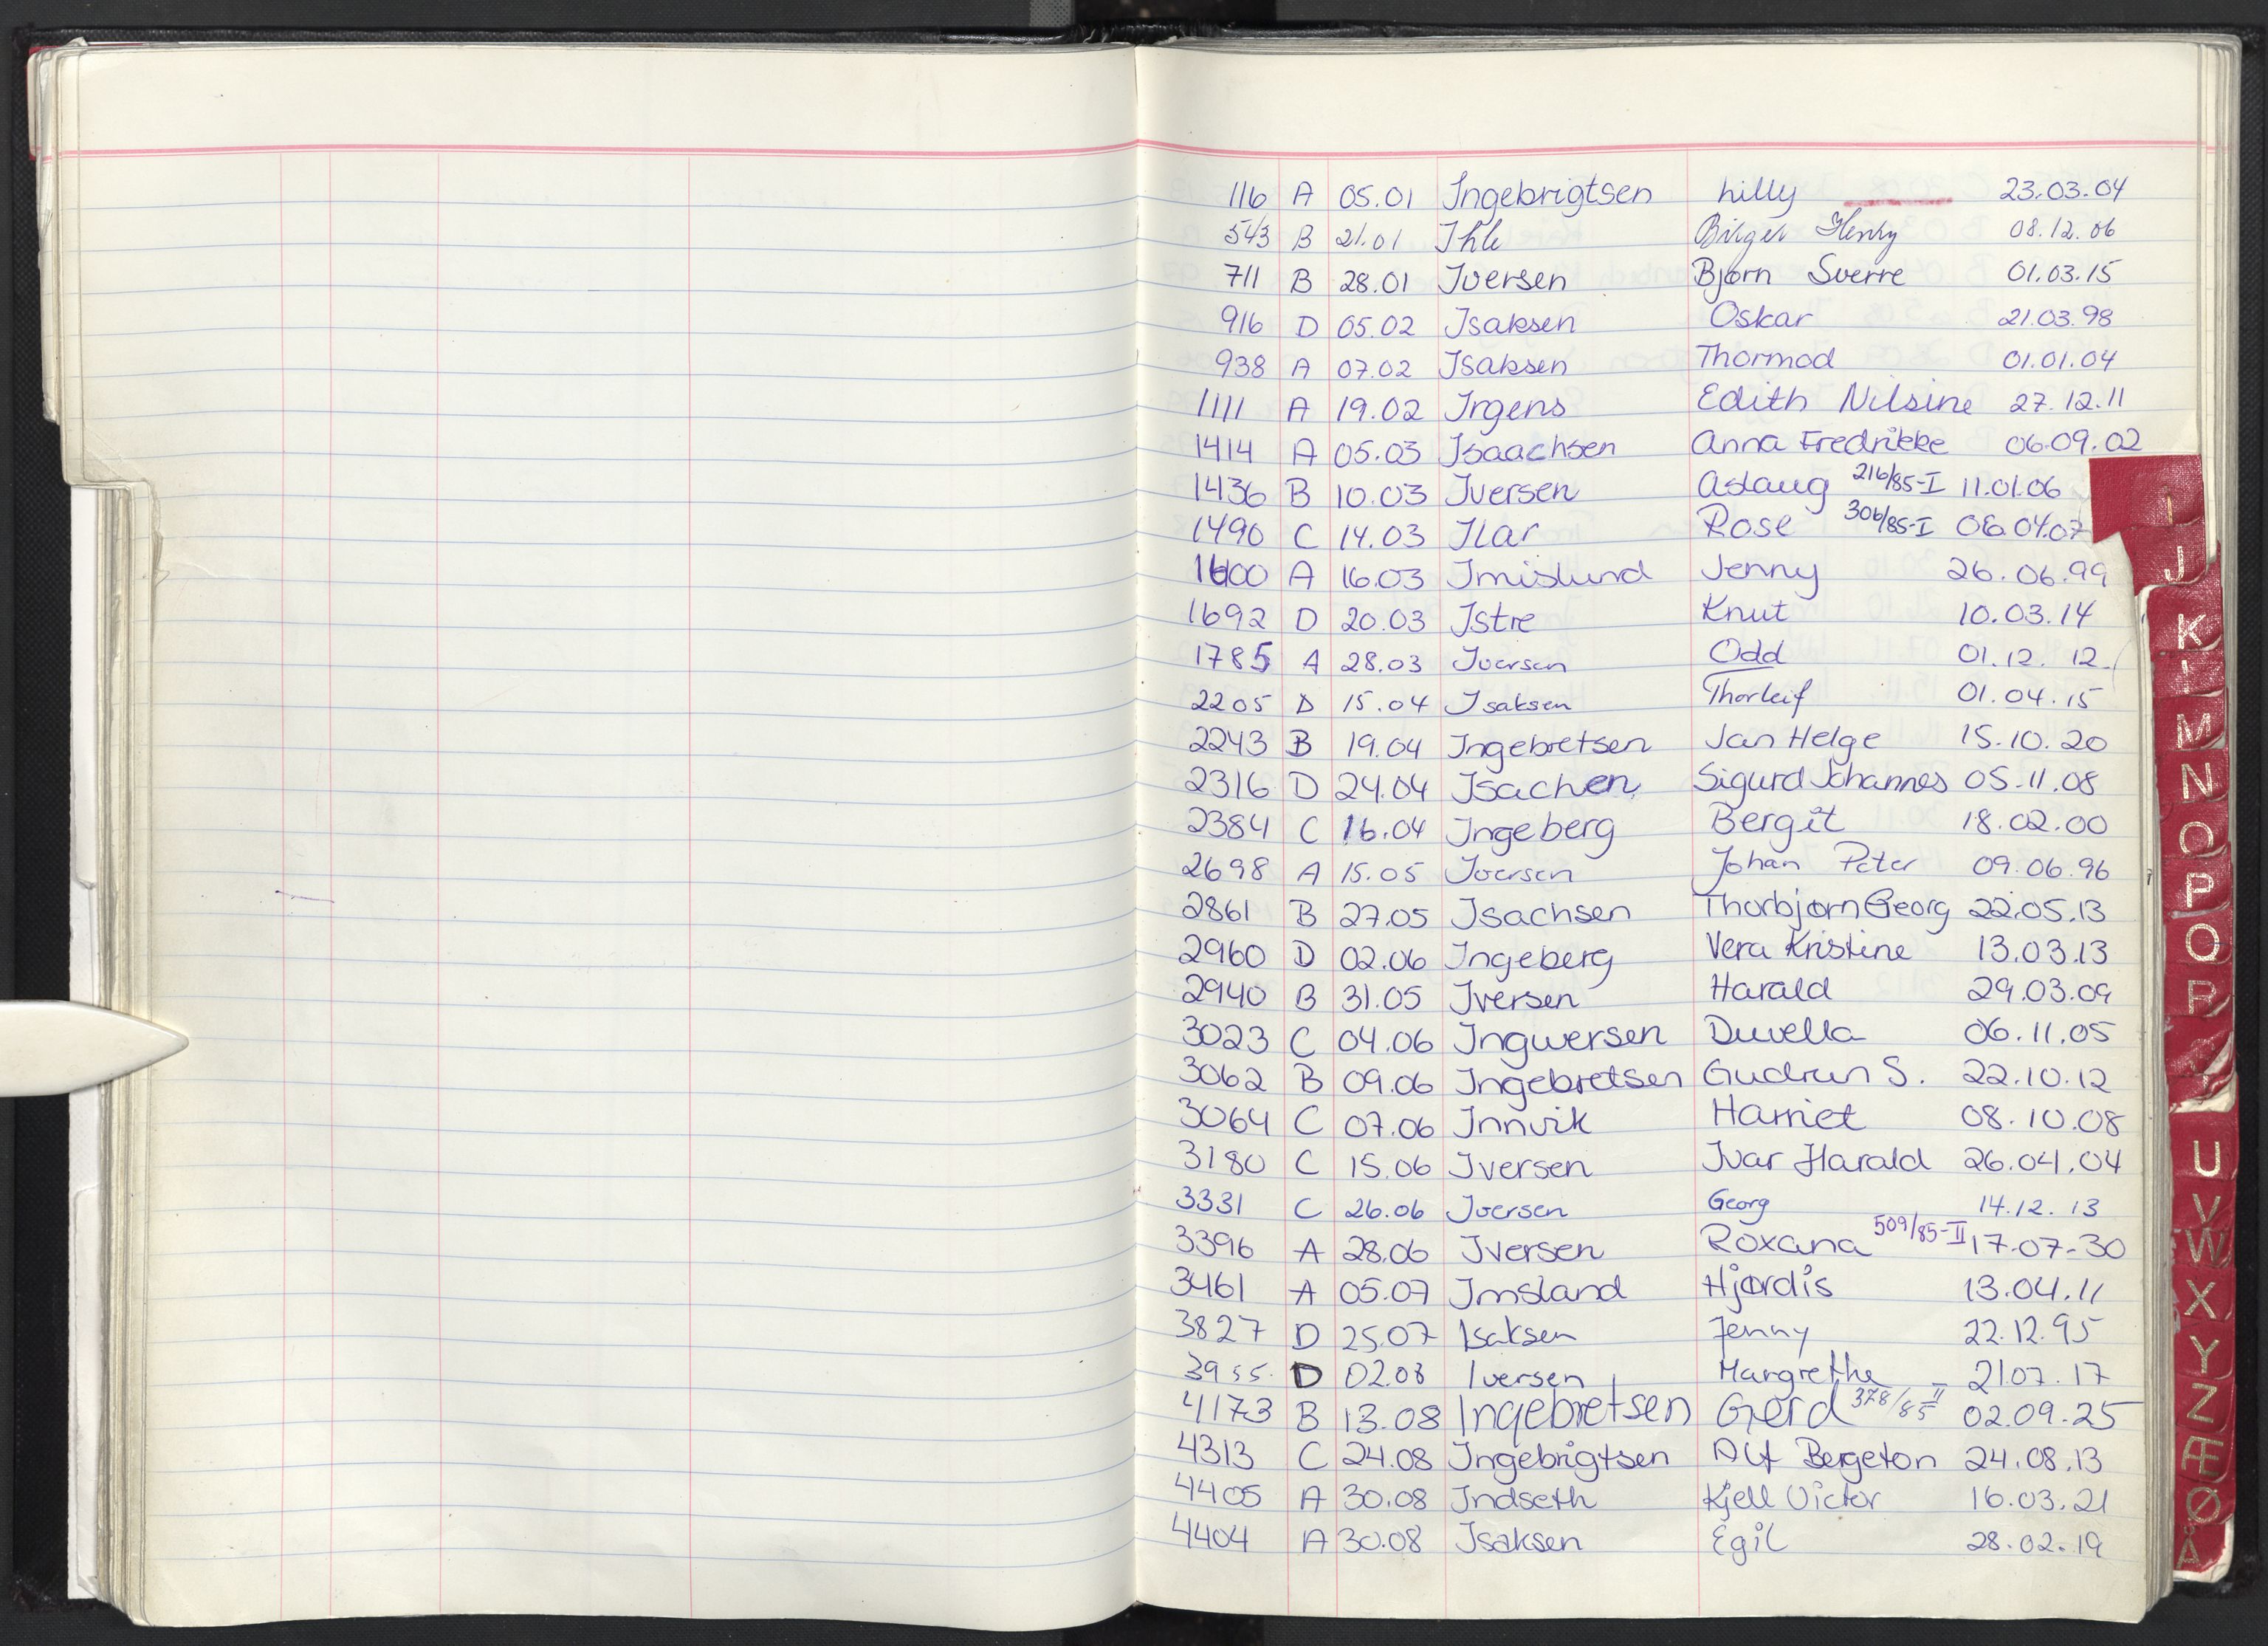 116 A 05.01 Ingebrigtsen Lilly 23.03.04
543 B 21.01 Ihle Birger Henry 08.12.06
711 B 28.01 Iversen Bjørn Sverre 01.03.15
916 D 05.02 Isaksen Oskar 21.03.98
938 A 07.02 Isaksen Thormod 01.01.04
1111 A 19.02 Irgens Edith Nilsine 27.12.11
1414 A 05.03 Isaachsen Anna Fredrikke 06.09.02
1436 B 10.03 Iversen Aslaug 216/85-I 11.01.06
1490 C 14.03 Ilar Rose 306/85-I 06.04.07
1600 A 16.03 Imislund Jenny 26.06.99
1692 D 20.03 Istre Knut 10.03.14
1785 A 28.03 Iversen Odd 01.12.12
2205 D 15.04 Isaksen Thorleif 01.04.15
2243 B 19.04 Ingebretsen Jan Helge 15.10.20
2316 D 24.04 Isachen Sigurd Johannes 05.11.08
2384 C 16.04 Ingeberg Bergit 18.02.00
2698 A 15.05 Iversen Johan Peter 09.06.96
2861 B 27.05 Isachsen Thorbjørn Georg 22.05.13
2960 D 02.06 Ingeberg Vera Kristine 13.03.13
2940 B 31.05 Iversen Harald 29.03.09
3023 C 04.06 Ingwersen Duvella 06.11.05
3062 B 09.06 Ingebretsen Gudrun S. 22.10.12
3064 C 07.06 Innvik Harriet 08.10.08
3180 C 15.06 Iversen Ivar Harald 26.04.04
3331 C 26.06 Iversen Georg 14.12.13
3396 A 28.06 Iversen Roxana 509/85-II 17-07-30
3461 A 05.07 Imsland Hjørdis 13.04.11
3827 D 25.07 Isaksen Jenny 22.12.95
3955 D 02.08 Iversen Margrethe 21.07.17
4173 B 13.08 Ingebretsen Gerd 378/85 II 02.09.25
4313 C 24.08 Ingebrigtsen Alf Bergeton 24.08.13
4405 A 30.08 Indseth Kjell Victor 16.03.21
4404 A 30.08 Isaksen Egil 28.02.19
I
J
K
M
N
O
P
Q
R
U
V
W
X
Y
Z
Æ
Ø
Å